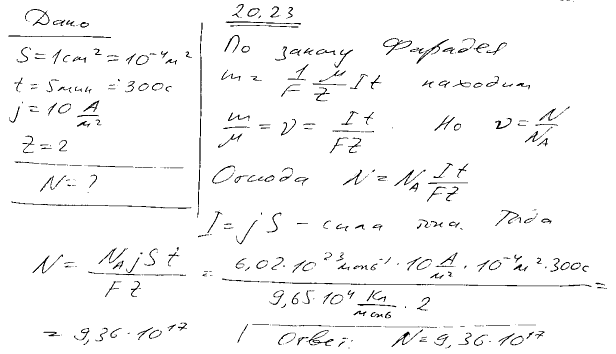 Дано
S = 1 cm² = 10⁻⁴ м²
t = 5 мин = 300 с
j = 10 A/м²
Z = 2
N = ?
20.23
По закону Фарадея
m = 1/F μ/Z It находим
m/μ = ν = It/FZ . Но ν = N/N_A
Отсюда N = N_A It/FZ
I = jS – сила тока. Тогда
N = N_A jSt / FZ = 6,02·10²³ моль⁻¹ · 10 A/м² · 10⁻⁴ м² · 300 с / 9,65·10⁴ Кл/моль · 2 =
= 9,36·10¹⁷
Ответ: N = 9,36·10¹⁷